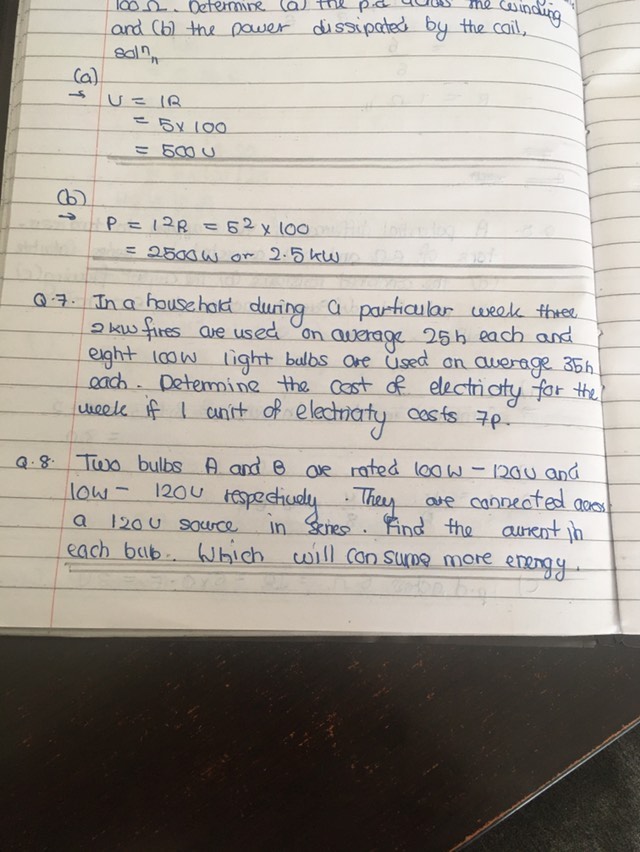 100Ω. Determine (a) the p.d across the winding
and (b) the power dissipated by the coil,
solⁿ,,
(a)
→ V = IR
= 5x 100
= 500 V
(b)
→ P = I²R = 5² x 100
= 2500W or 2.5 kW
Q.7. In a household during a particular week three
2kw fires are used on average 25h each and
eight 100W light bulbs are used on average 35h
each. Determine the cost of electricity for the
week if 1 unit of electricity costs 7p.
Q.8. Two bulbs A and B are rated 100W - 120V and
10W - 120V respectively. They are connected across
a 120V source in Series. Find the current in
each bulb. Which will consume more energy.